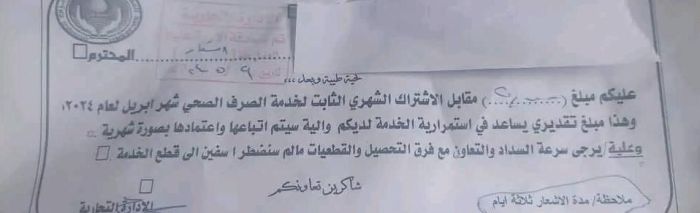 الإدارة التجارية
اشعار
المحترم
تحية طيبة وبعد ،،،
عليكم مبلغ (......) مقابل الاشتراك الشهري الثابت لخدمة الصرف الصحي شهر ابريل لعام ٢٠٢٤م
وهذا مبلغ تقديري يساعد في استمرارية الخدمة لديكم والية سيتم اتباعها واعتمادها بصورة شهرية
وعلية / يرجى سرعة السداد والتعاون مع فرق التحصيل والقطعيات مالم سنضطر اسفين الى قطع الخدمة
شاكرين تعاونكم
ملاحظة/ مدة الاشعار ثلاثة ايام
الإدارة التجارية